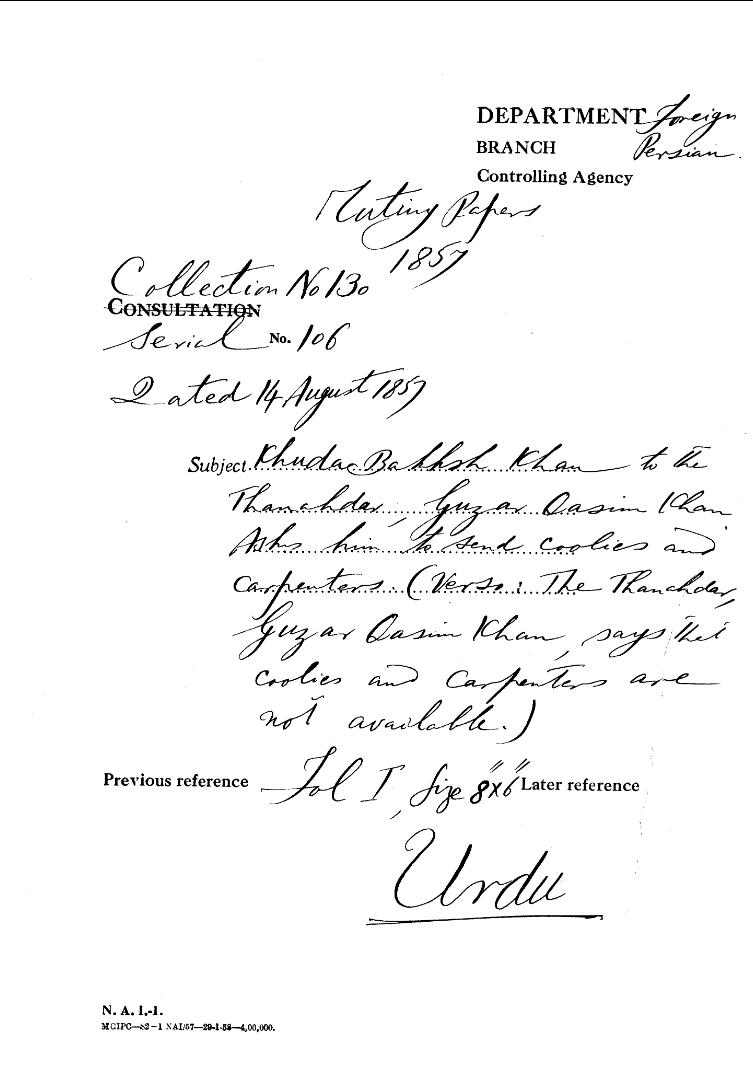 DEPARTMENT Foreign
BRANCH Persian.
Controlling Agency
Mutiny Papers
1857
Collection No 130
CONSULTATION
Serial No. 106
Dated 14 August 1857
Subject Khuda Bakhsh Khan to the
Thanahdar, Guzar Qasim Khan
Asks him to send coolies and
Carpenters. (Verso: The Thanahdar,
Guzar Qasim Khan, says that
coolies and carpenters are
not available.)
Previous reference Fol I, Size 8"x6" Later reference
Urdu
N. A. I.-1.
MGIPC—S2—1 NAI/57—29-1-58—4,00,000.